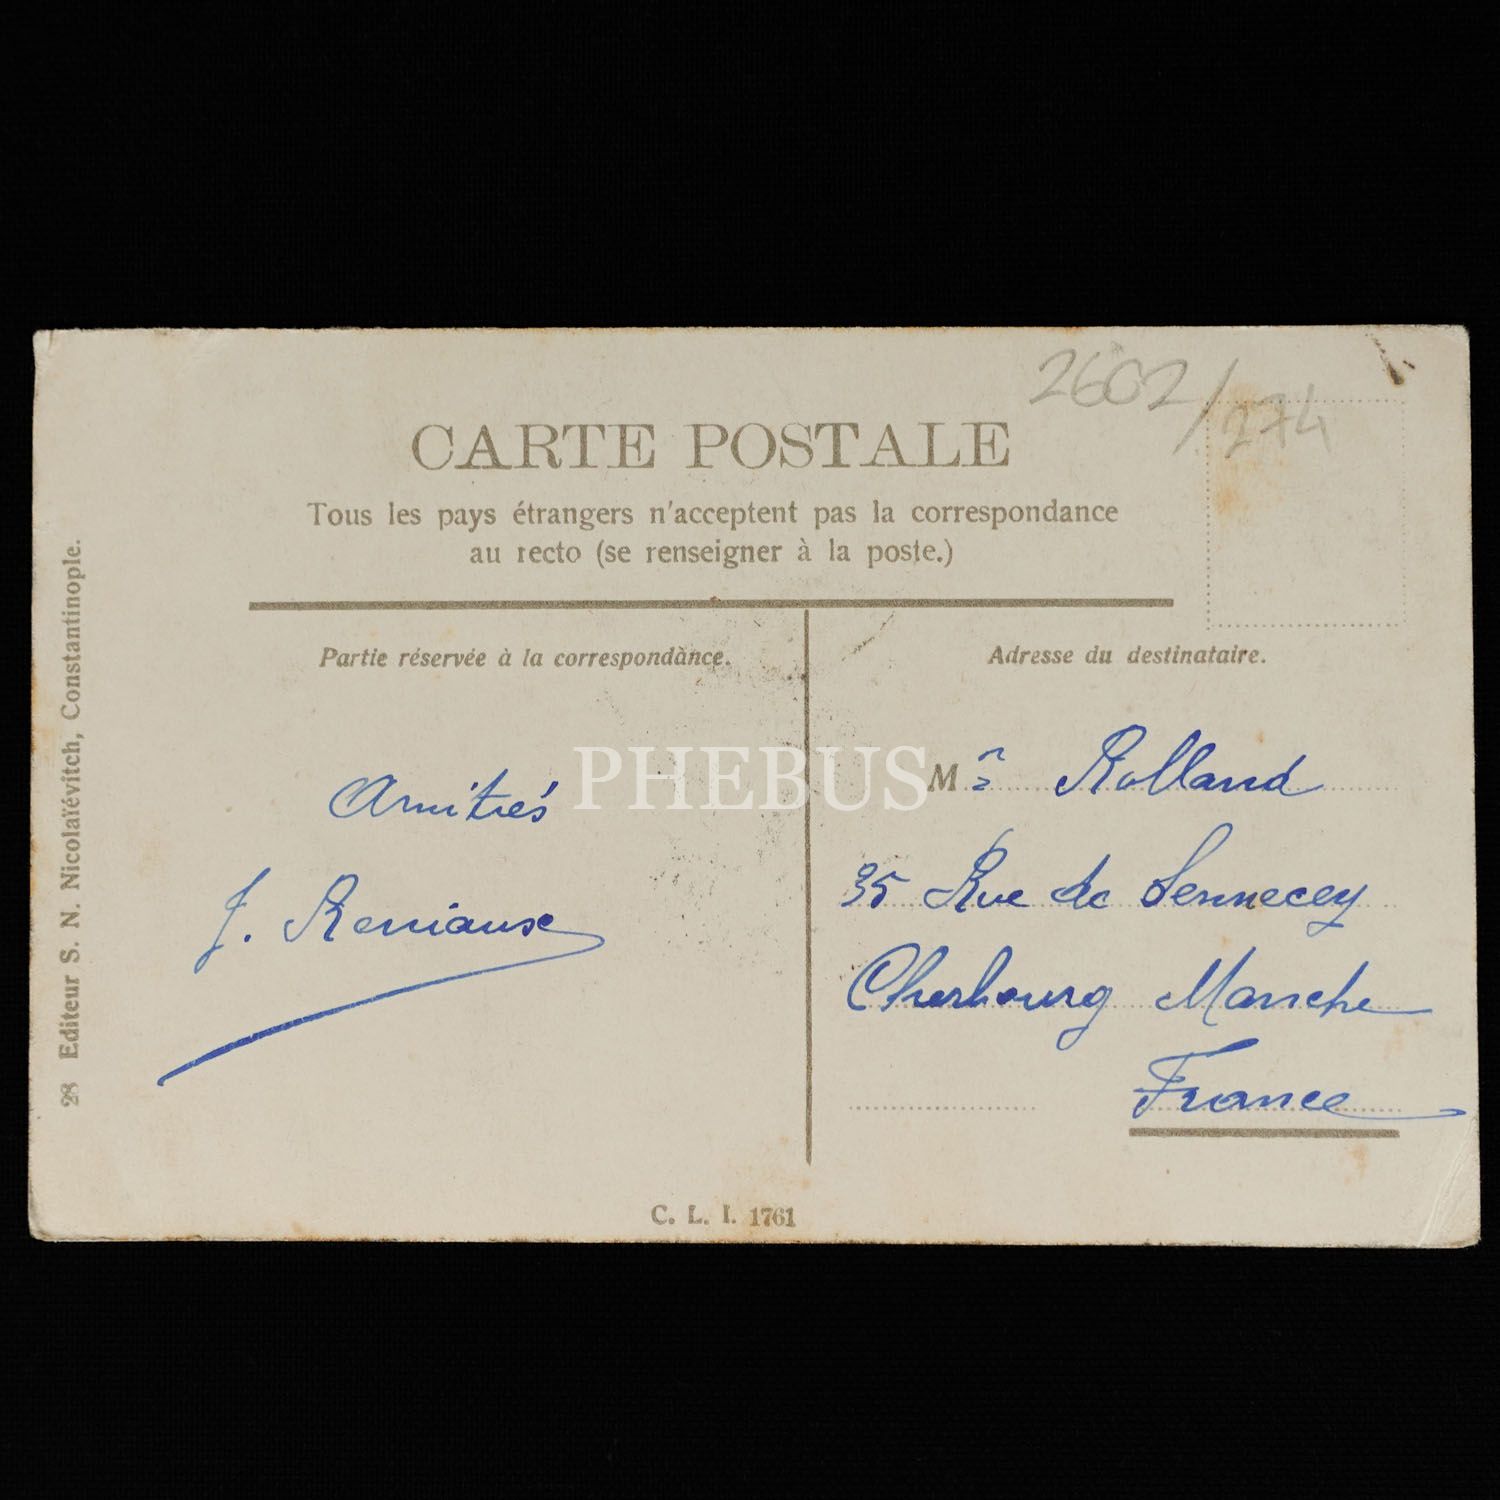 2602/274
CARTE POSTALE
Tous les pays étrangers n'acceptent pas la correspondance
au recto (se renseigner à la poste.)
Partie réservée à la correspondance.
Adresse du destinataire.
28 Editeur S. N. Nicolaïévitch, Constantinople.
Amitiés
J.
PHEBUS
M Rolland
35 Rue de Sennecey
Cherbourg Manche
France
C. L. I. 1761